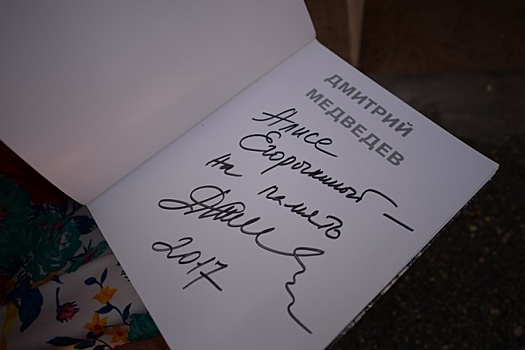 ДМИТРИЙ
МЕДВЕДЕВ
Алисе
Егорочкиной –
на память
2017